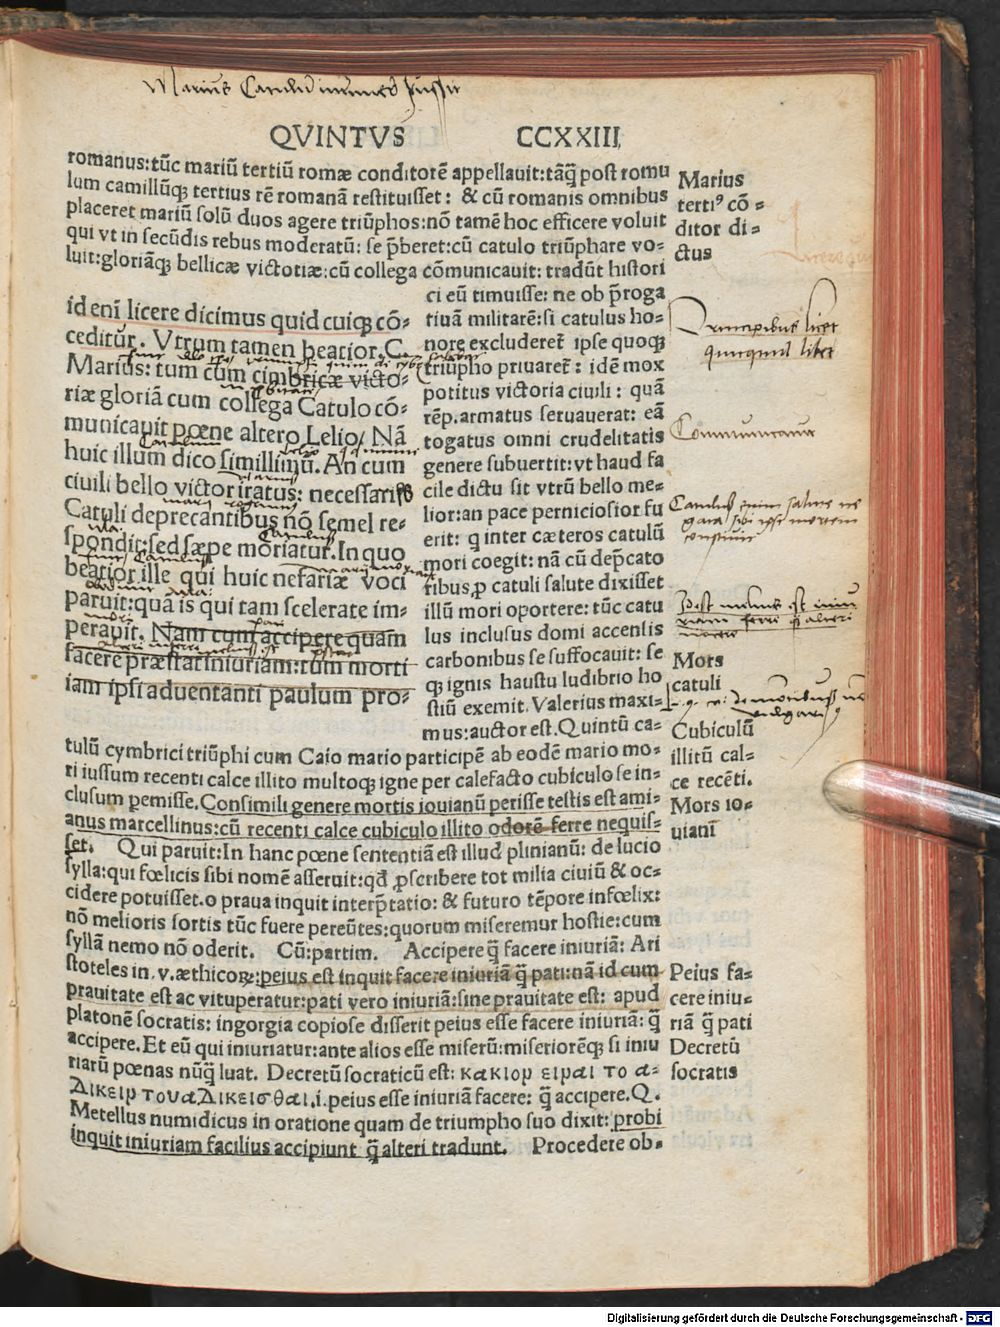 QVINTVS CCXXIII
romanus:tūc mariū tertiū romæ conditorē appellauit:tāq̄ post romu
lum camillūq; tertius rē romanā restituisset: & cū romanis omnibus
placeret mariū solū duos agere triūphos:nō tamē hoc efficere voluit
qui vt in secūdis rebus moderatū: se p̄beret:cū catulo triūphare vo=
luit:gloriāq; bellicæ victotiæ:cū collega cōmunicauit: tradūt histori
Marius
terti⁹ cō =
ditor di =
ctus
ci eū timuisse: ne ob p̄roga
tiuā militarē:si catulus ho=
nore excluderet ipse quoq;
triūpho priuaret: idē mox
potitus victoria ciuili : quā
rēp.armatus seruauerat: eā
togatus omni crudelitatis
genere subuertit:vt haud fa
cile dictu sit vtrū bello me=
lior:an pace perniciosior fu
erit: q inter cæteros catulū
mori coegit: nā cū dep̄cato
ribus,p catuli salute dixisset
illū mori oportere: tūc catu
lus inclusus domi accensis
carbonibus se suffocauit: se
q; ignis haustu ludibrio ho
stiū exemit. Valerius maxi=
mus:auctor est.Quintū ca=
id enī licere dicimus quid cuiq; cō=
ceditur. Vtrum tamen beatior.C.
Marius: tum cum cimbricæ victo=
riæ gloriā cum collega Catulo cō=
municauit pœne altero Lelio/ Nā
huic illum dico simillimū. An cum
ciuili bello victor iratus: necessariis
Catuli deprecantibus nō semel re=
spondit:sed sæpe moriatur.In quo
beatior ille qui huic nefariæ voci
paruit:quā is qui tam scelerate im=
perauit. Nam cum accipere quam
facere præstat iniuriam:tum morti
iam ipsi aduentanti paulum pro=
Communicauit
Mors
catuli
Cubiculū
illitū cal=
ce recēti.
Mors io=
uiani
tulū cymbrici triūphi cum Caio mario participē ab eodē mario mo=
ri iussum recenti calce illito multoq; igne per calefacto cubiculo se in=
clusum pemisse.Consimili genere mortis iouianū perisse testis est ami=
anus marcellinus:cū recenti calce cubiculo illito odorē ferre nequis=
set. Qui paruit:In hanc pœne sententiā est illud plinianū: de lucio
sylla:qui fœlicis sibi nomē asseruit:qd̄ ,pscribere tot milia ciuiū & oc=
cidere potuisset.o praua inquit interp̄tatio: & futuro tēpore infœlix:
nō melioris sortis tūc fuere pereūtes:quorum miseremur hostie:cum
syllā nemo nō oderit. Cū:partim. Accipere q̄ facere iniuriā: Ari
stoteles in.v.æthicoꝝ:peius est inquit facere iniuriā q̄ pati:nā id cum
prauitate est ac vituperatur:pati vero iniuriā:sine prauitate est: apud
platonē socratis: ingorgia copiose disserit peius esse facere iniuriā: q̄
accipere.Et eū qui iniuriatur:ante alios esse miserū:miseriorēq; si iniu
riarū pœnas nūq̄ luat. Decretū socraticū est: κακιον ειναι το α-
Δικειν τουαΔικεισθαι.i.peius esse iniuriā facere: q̄ accipere.Q.
Metellus numidicus in oratione quam de triumpho suo dixit: probi
inquit iniuriam facilius accipiunt q̄ alteri tradunt. Procedere ob=
Peius fa=
cere iniu=
riā q̄ pati
Decretū
socratis
Digitalisierung gefördert durch die Deutsche Forschungsgemeinschaft - DFG